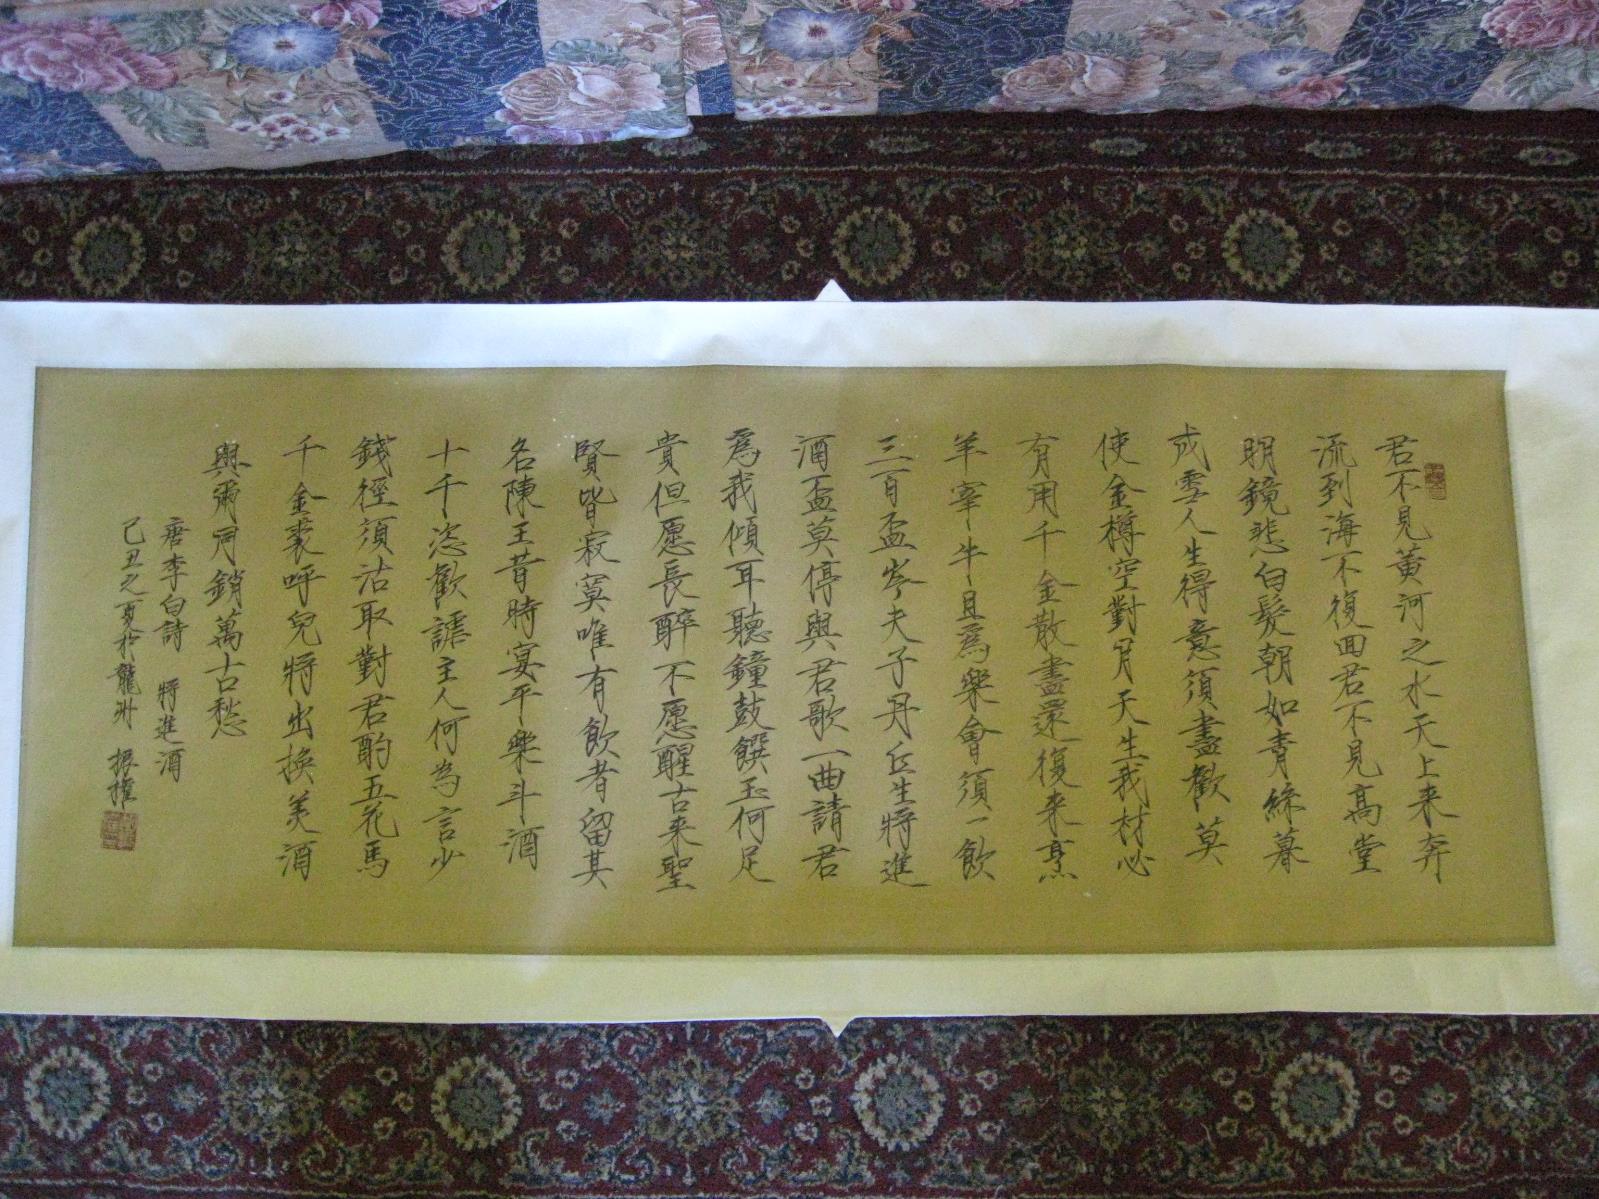 君不見黃河之水天上来奔
流到海不復回君不見高堂
明鏡悲白髮朝如青絲暮
成雪人生得意須盡歡莫
使金樽空對月天生我材必
有用千金散盡還復来烹
羊宰牛且為樂會須一飲
三百盃岑夫子丹丘生將進
酒盃莫停與君歌一曲請君
為我傾耳聽鐘鼓饌玉何足
貴但愿長醉不愿醒古来聖
賢皆寂寞唯有飲者留其
名陳王昔時宴平樂斗酒
十千恣歡謔主人何為言少
錢徑須沽取對君酌五花馬
千金裘呼兒將出換美酒
與爾同銷萬古愁
唐李白詩 將進酒
己丑之夏於龍州 振權